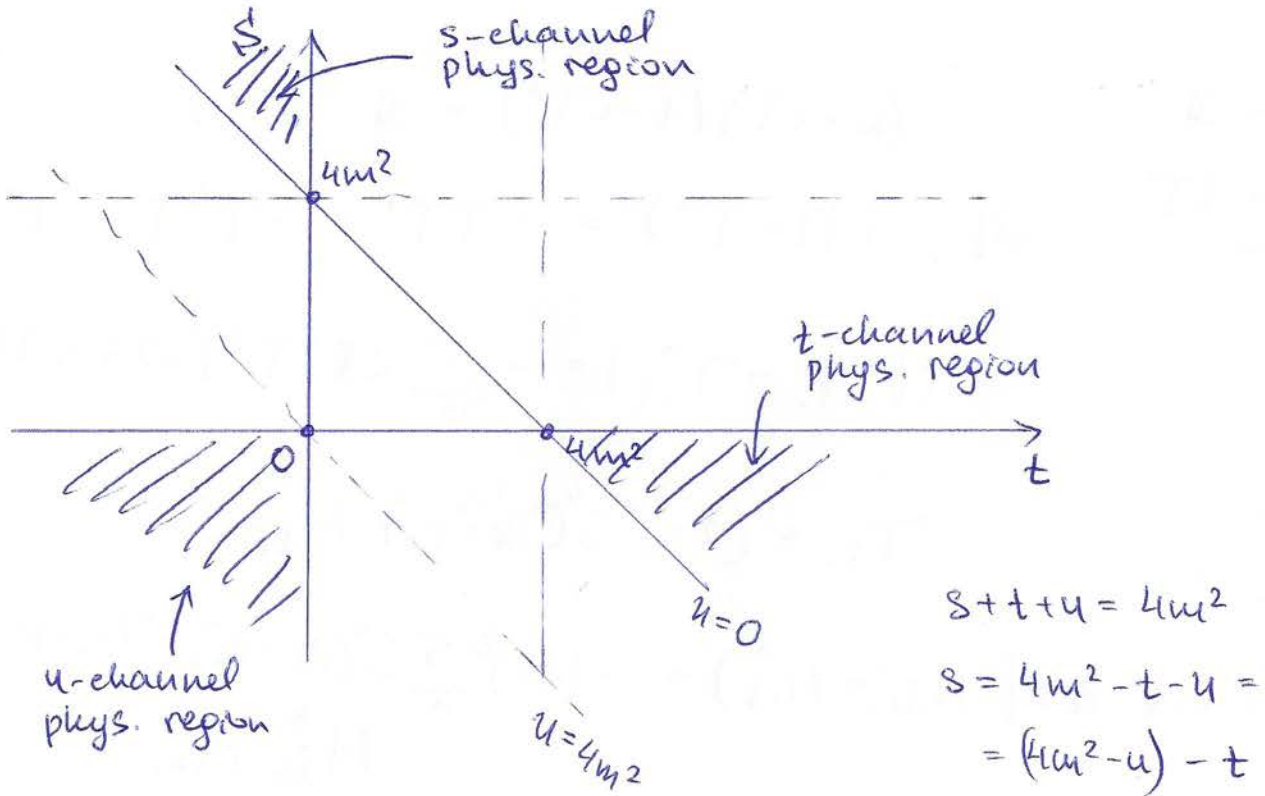 s
s-channel
phys. region
4m²
t-channel
phys. region
0
4m²
t
u=0
u-channel
phys. region
u=4m²
s+t+u = 4m²
s = 4m²-t-u =
= (4m²-u) - t